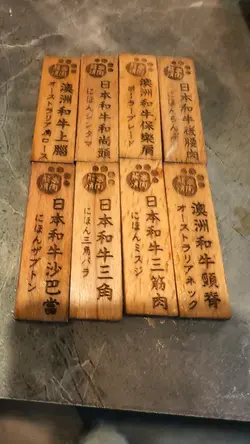 澳洲和牛上腦
オーストラリア肩ロース
日本和牛和尚頭
にほんシンタマ
澳洲和牛保樂肩
ボーラーブレード
日本和牛後腿肉
日本和牛沙巴當
にほんザブトン
日本和牛三角
にほん三角バラ
日本和牛三筋肉
にほんミスジ
澳洲和牛頸脊
オーストラリアネック